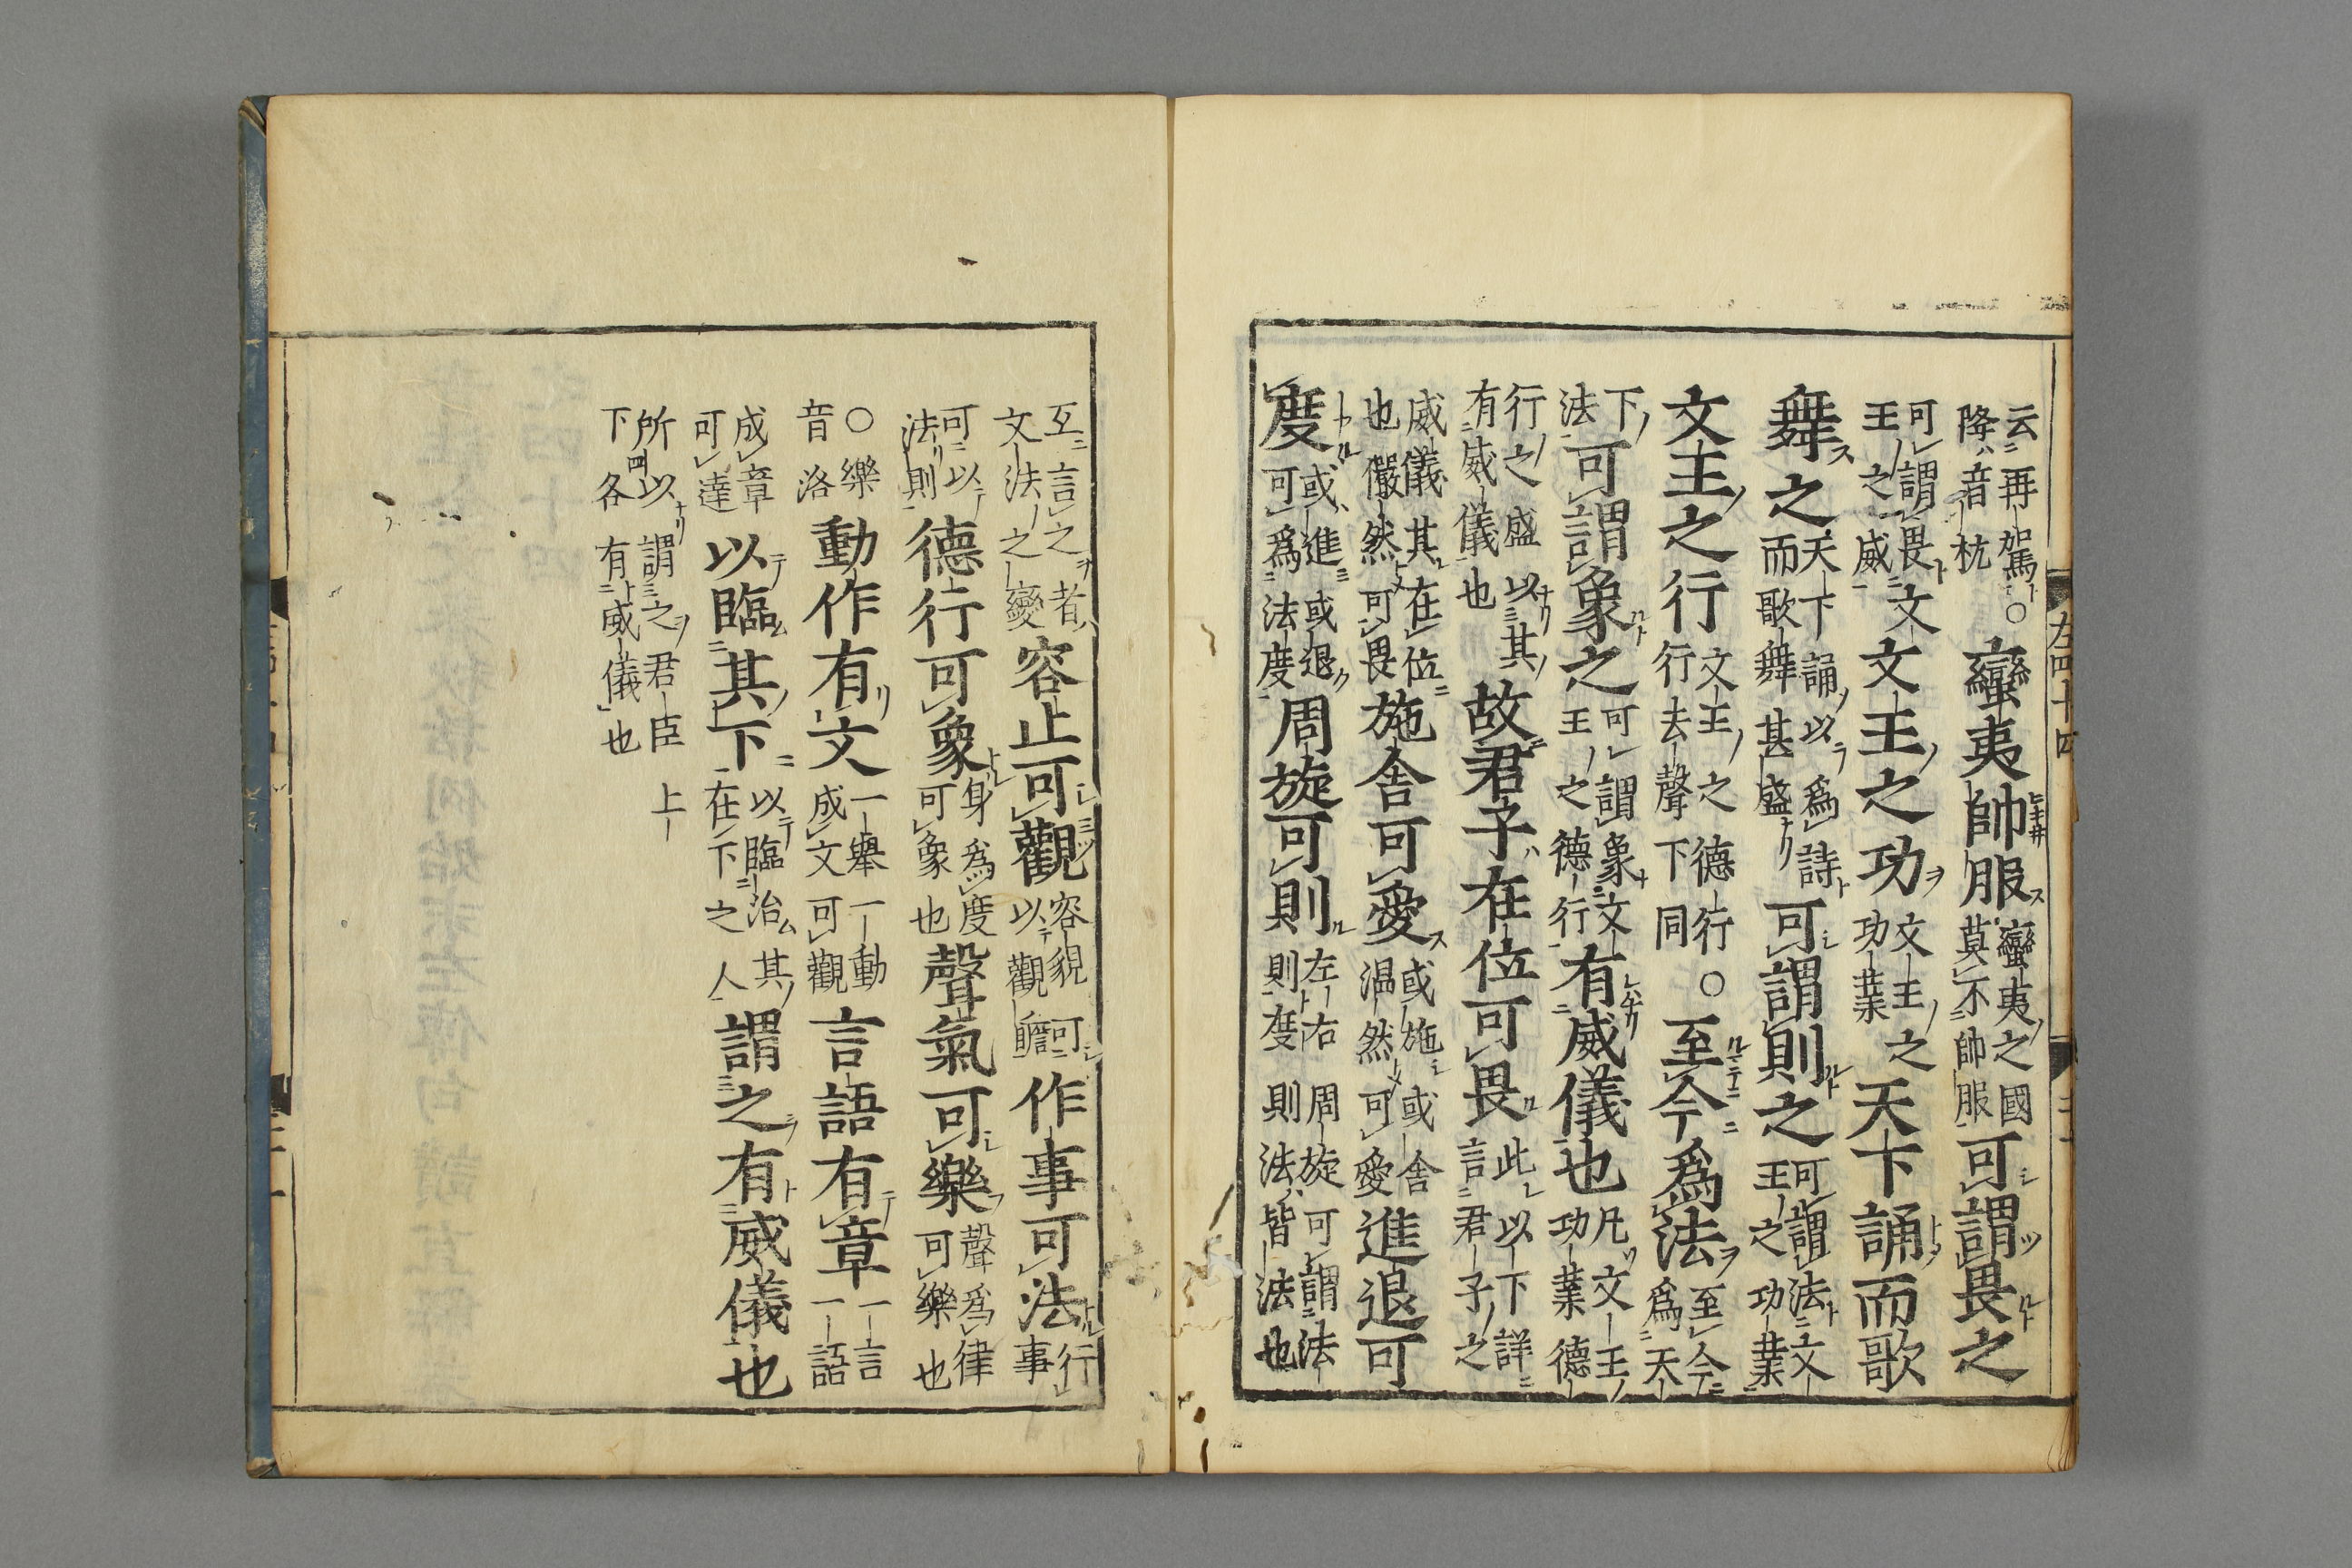 云再駕○降音杭蠻夷帥服蠻夷之國莫不帥服可謂畏之
可謂畏文王之威文王之功文王之功業天下誦而歌
舞之天下誦以爲詩而歌舞甚盛可謂則之可謂法文王之功業
文王之行文王之德行行去聲下同○至今爲法至今爲天
下法可謂象之可謂象文王之德行有威儀也凡文王功業德
行之盛以其有威儀也故君子在位可畏此以下詳言君子之
威儀其在位也儼然可畏施舍可愛或施或舍溫然可愛進退可
度或進或退可爲法度周旋可則左右周旋可謂法則度則法皆法也
互言之者文法之變容止可觀容貌可以觀瞻作事可法行事
可以法則德行可象身爲度可象也聲氣可樂聲爲律可樂也
○樂音洛動作有文一舉一動成文可觀言語有章一言一語
成章可達以臨其下以臨治其在下之人謂之有威儀也
所以謂之君臣上下各有威儀也
左四十四